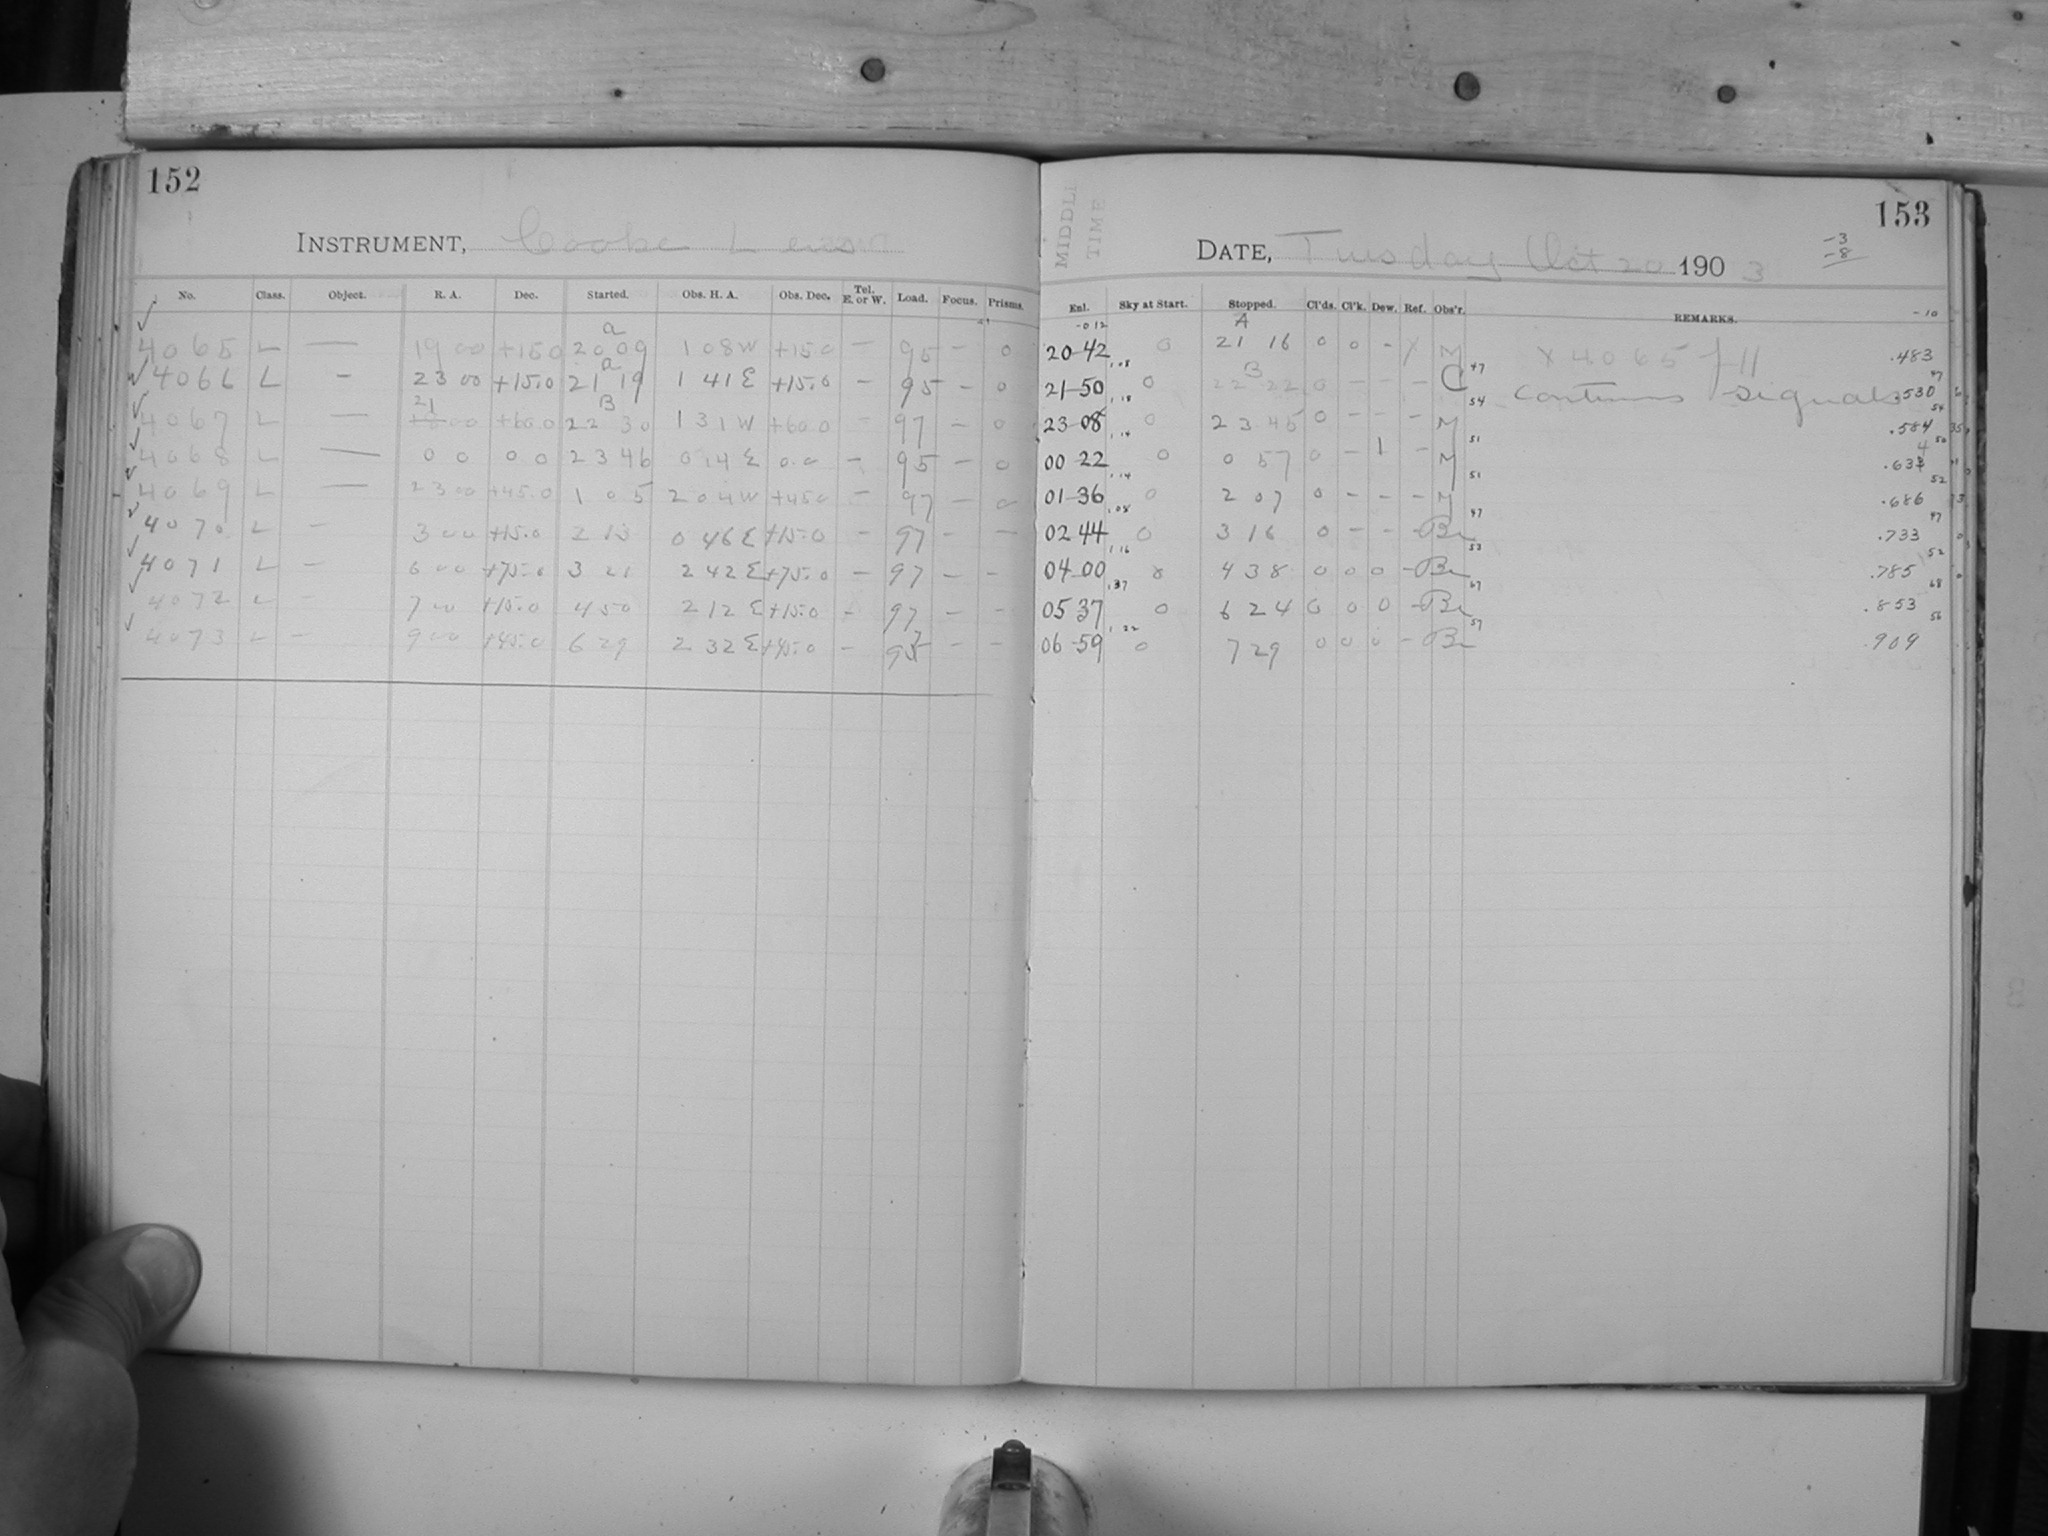 152
INSTRUMENT, Cooke Lens
No. Class. Object. R. A. Dec. Started. Obs. H. A. Obs. Dec. Tel. E. or W. Load. Focus. Prisms.
a
4065 L — 19 00 +15.0 20 09 1 08 W +15.0 — 95 — 0
a
4066 L — 23 00 +15.0 21 19 1 41 E +15.0 — 95 — 0
21 B
4067 L — 18 00 +60.0 22 30 1 31 W +60.0 — 97 — 0
4068 L — 0 0 0.0 23 46 0 14 E 0.0 — 95 — 0
4069 L — 23 00 +45.0 1 05 2 04 W +45.0 — 97 — 0
4070 L — 3 00 +15.0 2 13 0 46 E +15.0 — 97 — —
4071 L — 6 00 +75.0 3 21 2 42 E +75.0 — 97 — —
4072 L — 7 00 +15.0 4 50 2 12 E +15.0 — 97 — —
4073 L — 9 00 +45.0 6 29 2 32 E +45.0 — 97 — —
153
MIDDLE TIME
DATE, Tuesday Oct 20 1903
-3
-8
Enl. Sky at Start. Stopped. Cl'ds. Cl'k. Dew. Ref. Obs'r. REMARKS. -10
-012 A
20-42 0 21 16 0 0 - X M X 4065 fll .483
1.08 B 47 47
21-50 0 22 22 0 - - - C contains signals .530
1.18 54 54
23-08 0 23 45 0 - - - M .584
1.14 51 50
00 22 0 0 57 0 - 1 - M .634
1.14 51 52
01-36 0 2 07 0 - - - M .686
1.08 47 47
02 44 0 3 16 0 - - - Br .733
1 16 53 52
04-00 8 4 38 0 0 0 - Br .785
1.37 67 68
05 37 0 6 24 0 0 0 - Br .853
1.22 57 56
06-59 0 7 29 0 0 0 - Br .909